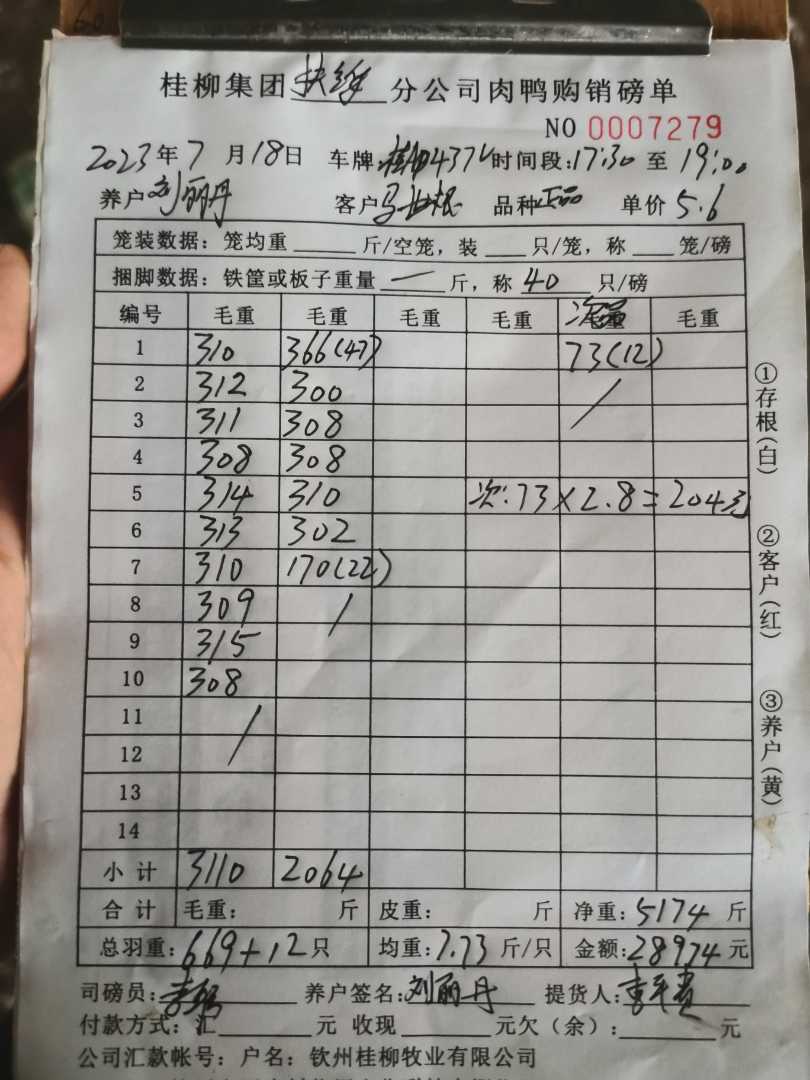 桂柳集团扶绥分公司肉鸭购销磅单
NO 0007279
2023年7月18日 车牌: 时间段:17:30至19:00
养户刘丽丹 客户 品种正品 单价5.6
笼装数据：笼均重 斤/空笼，装 只/笼，称 笼/磅
捆脚数据：铁筐或板子重量 — 斤，称 40 只/磅
编号 毛重 毛重 毛重 毛重 次品 毛重
1 310 366(47) 73(12)
2 312 300
3 311 308
4 308 308
5 314 310 次:73×2.8=204元
6 313 302
7 310 170(22)
8 309
9 315
10 308
11
12
13
14
小计 3110 2064
合计 毛重: 斤 皮重: 斤 净重:5174斤
总羽重:669+12只 均重:7.73斤/只 金额:28974元
司磅员: 养户签名:刘丽丹 提货人:
付款方式：汇 元 收现 元欠（余）: 元
公司汇款帐号：户名：钦州桂柳牧业有限公司
①存根(白)
②客户(红)
③养户(黄)